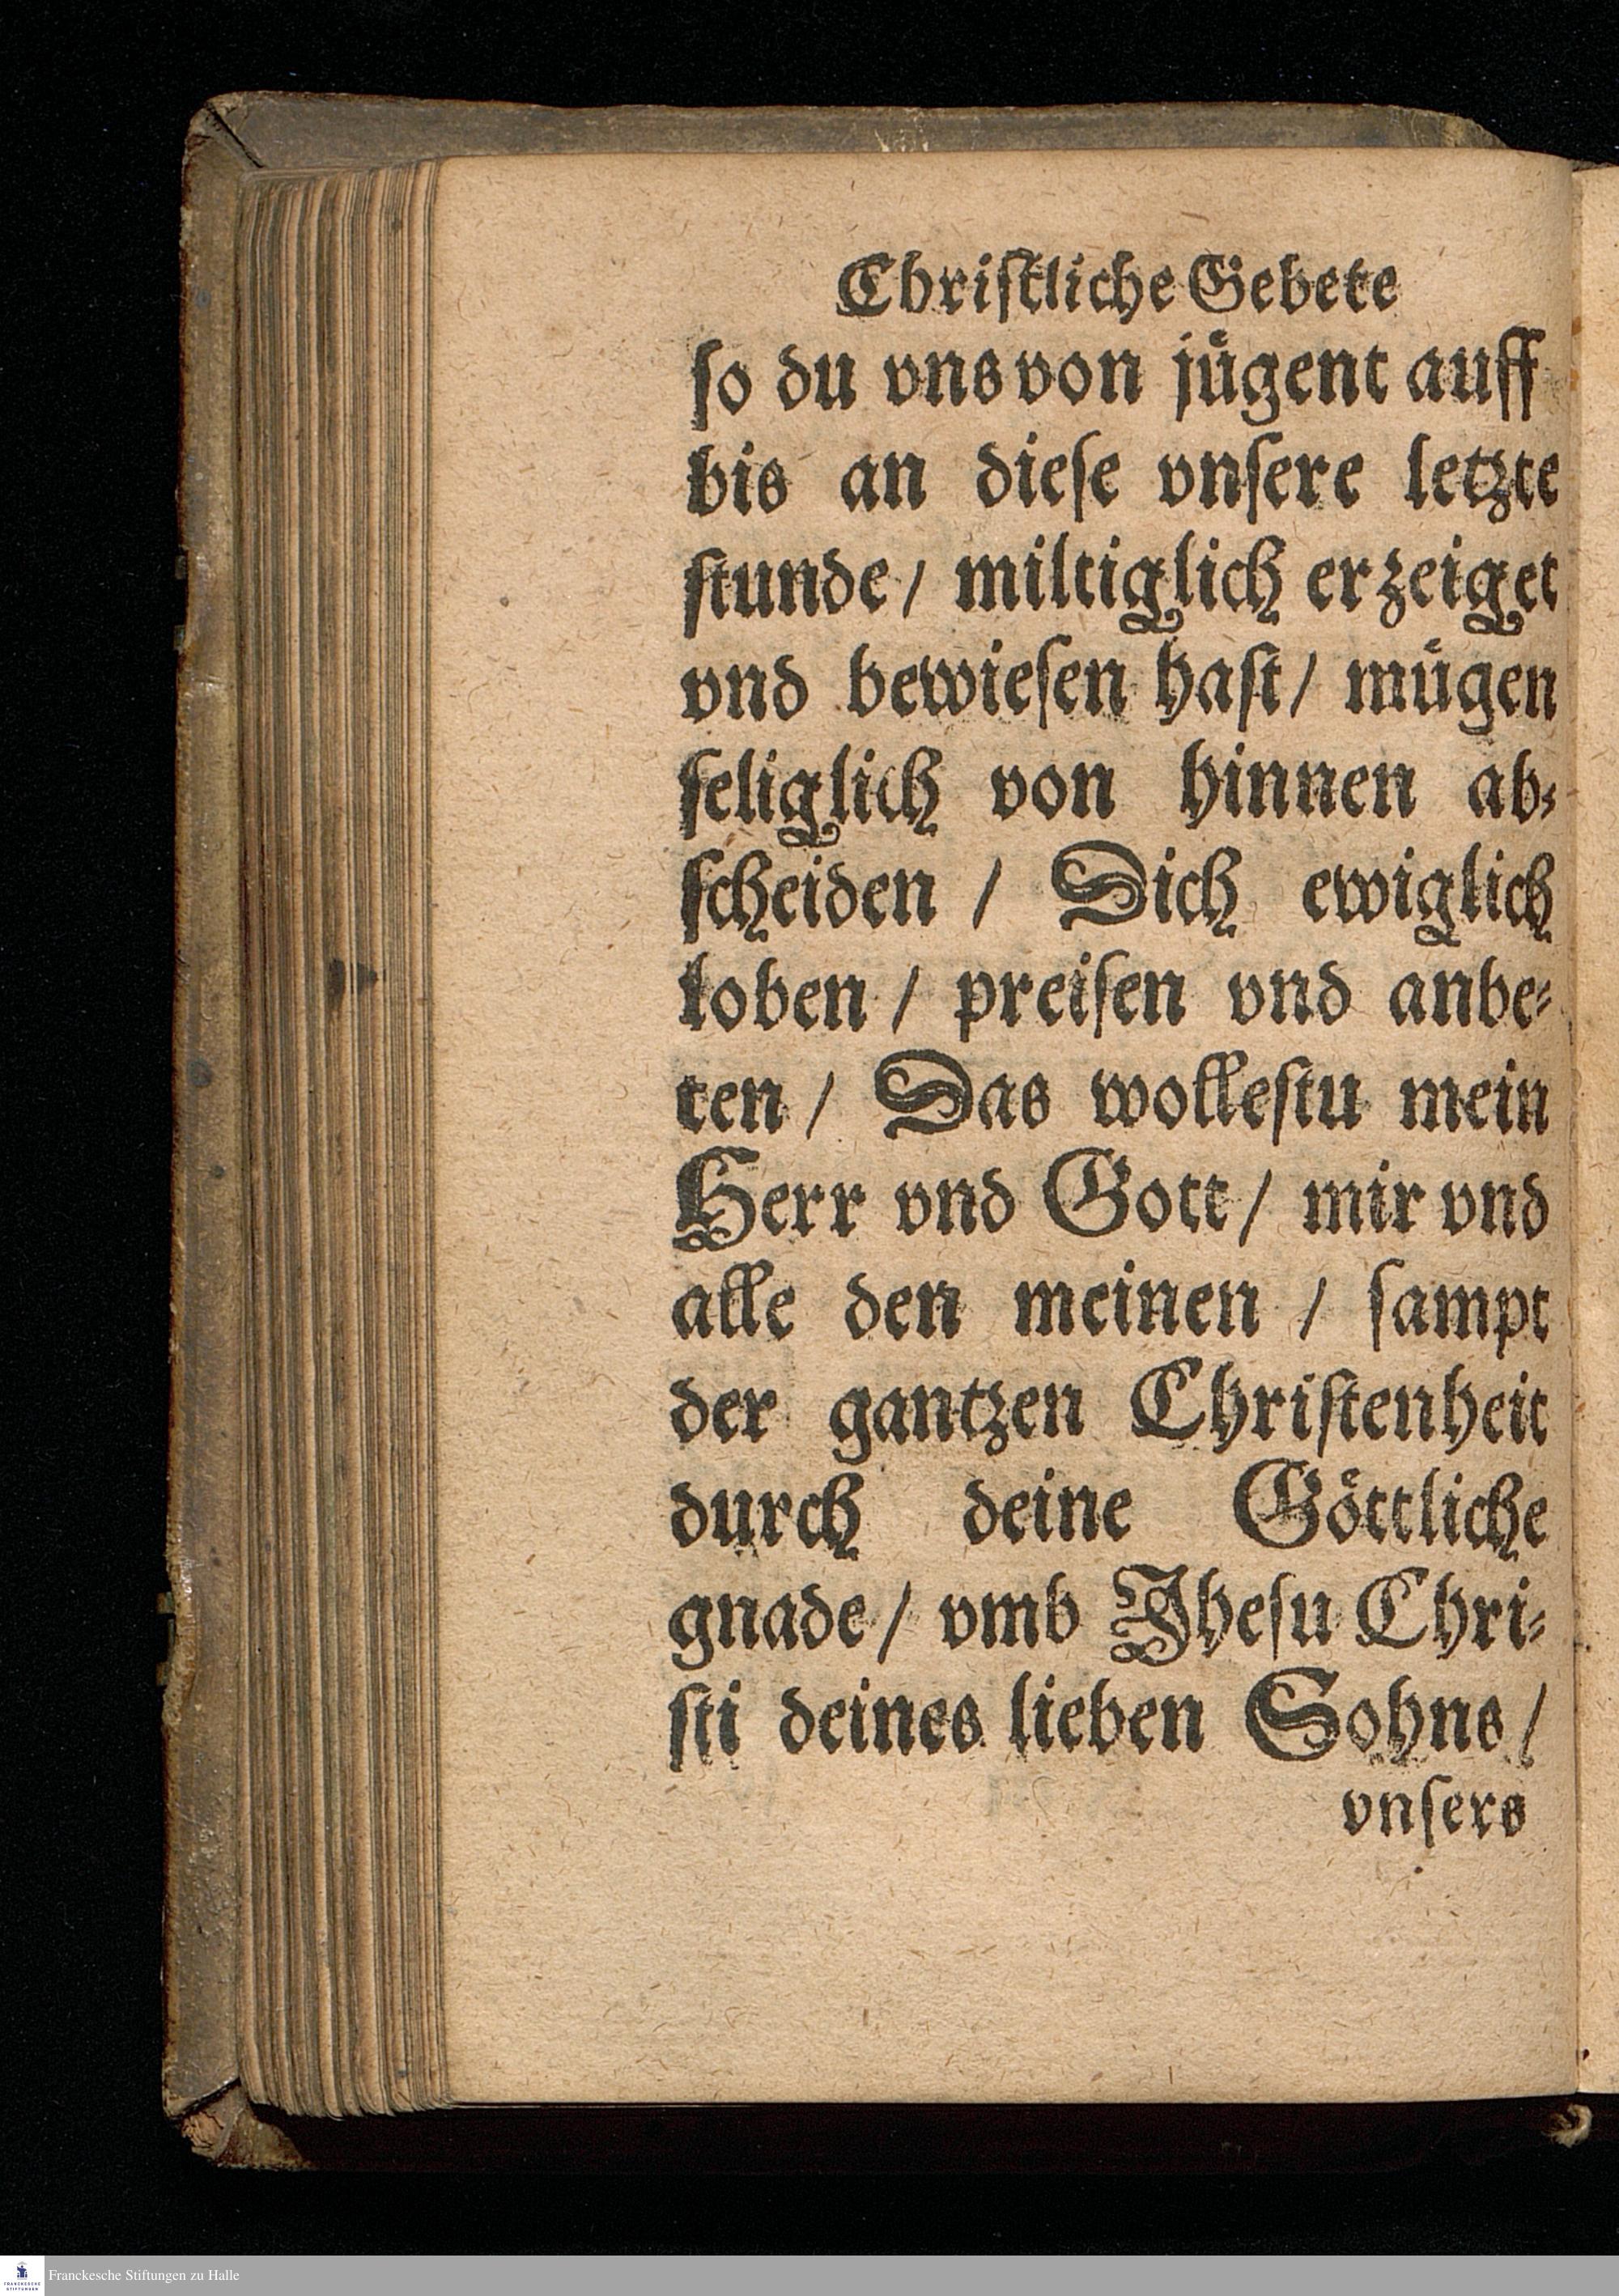 Chriſtliche Gebete
ſo du vns von juͤgent auff
bis an dieſe vnſere letzte
ſtunde / miltiglich erzeiget
vnd bewieſen haſt / muͤgen
ſeliglich von hinnen ab⸗
ſcheiden / Dich ewiglich
loben / preiſen vnd anbe⸗
ten / Das wolleſtu mein
Herr vnd Gott / mir vnd
alle den meinen / ſampt
der gantzen Chriſtenheit
durch deine Goͤttliche
gnade / vmb Jheſu Chri⸗
ſti deines lieben Sohns /
vnſers
FRANCKESCHE
STIFTUNGEN
Franckesche Stiftungen zu Halle